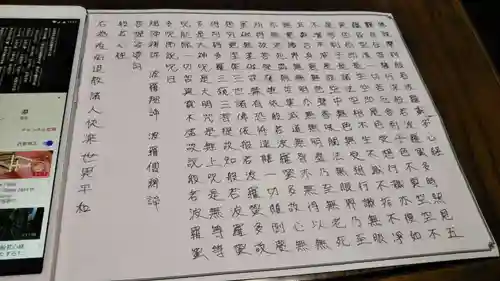 摩訶般若波羅蜜多心経
観自在菩薩行深般若波羅蜜多時照見五
蘊皆空度一切苦厄舎利子色不異空空不
異色色即是空空即是色受想行識亦復如
是舎利子是諸法空相不生不滅不垢不浄
不増不減是故空中無色無受想行識無眼
耳鼻舌身意無色声香味触法無眼界乃至
無意識界無無明亦無無明尽乃至無老死
亦無老死尽無苦集滅道無智亦無得以無
所得故菩提薩埵依般若波羅蜜多故心無
罣礙無罣礙故無有恐怖遠離一切顛倒夢
想究竟涅槃三世諸仏依般若波羅蜜多故
得阿耨多羅三藐三菩提故知般若波羅蜜
多是大神呪是大明呪是無上呪是無等等
呪能除一切苦真実不虚故説般若波羅蜜
多呪即説呪曰
掲諦掲諦 波羅掲諦 波羅僧掲諦
菩提薩婆訶
般若心経
右為在街道諸人快楽世界平和